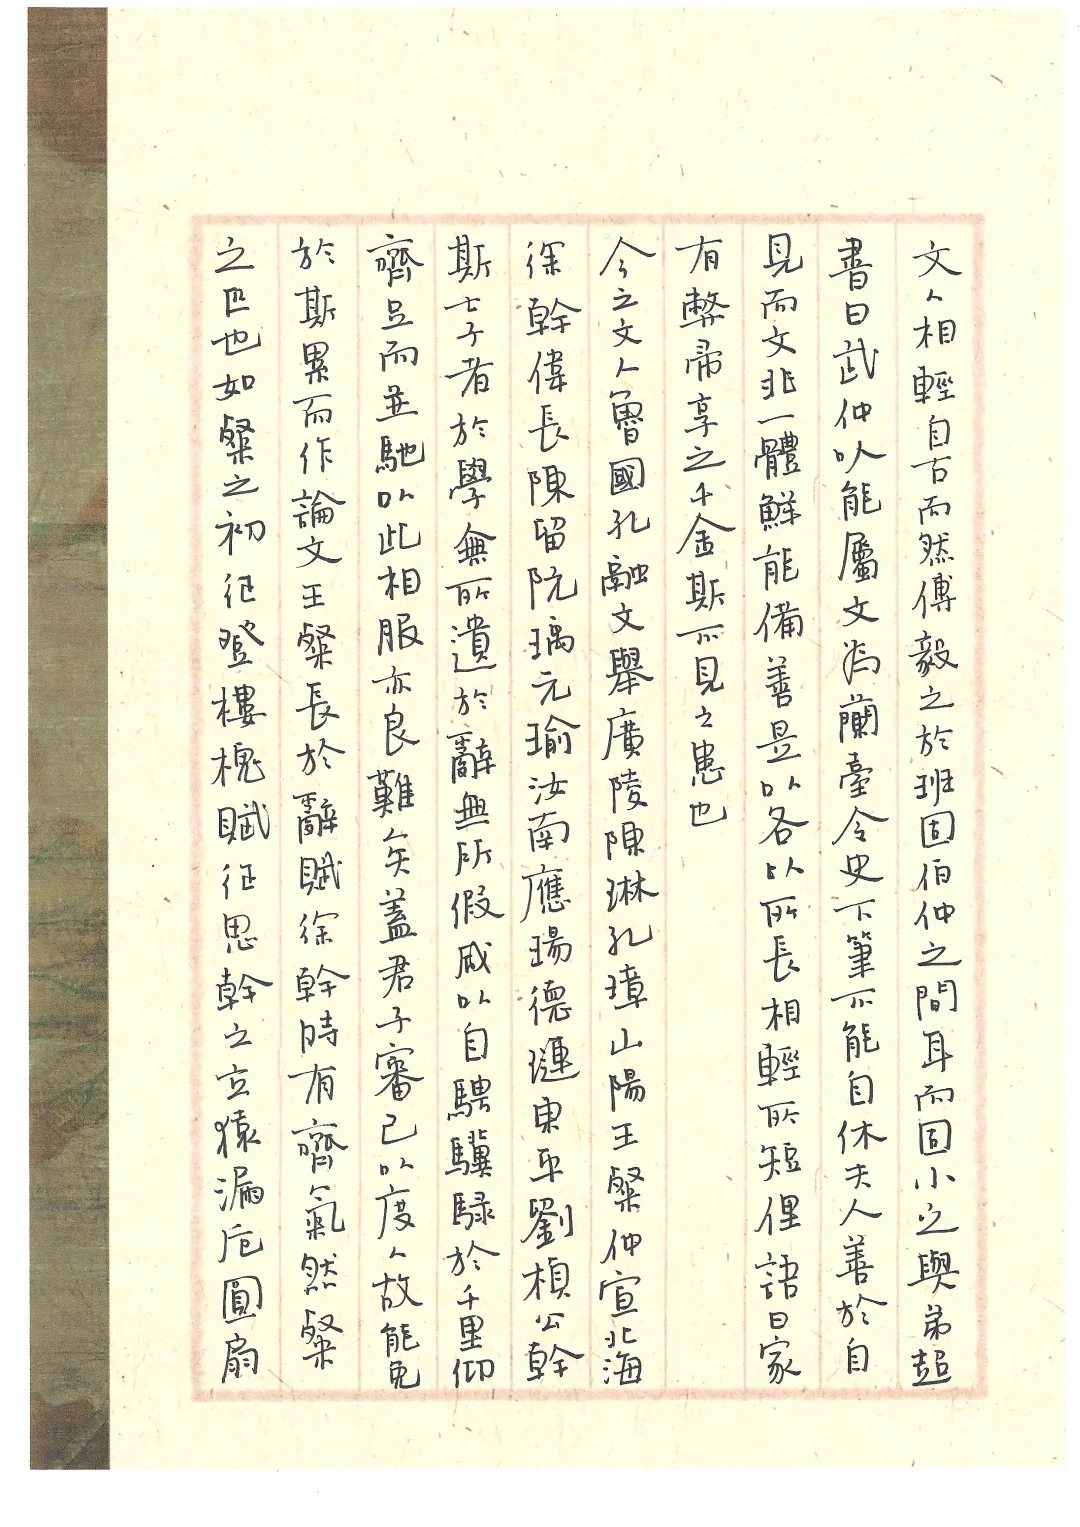 文人相輕自古而然傅毅之於班固伯仲之間耳而固小之與弟超
書曰武仲以能屬文為蘭臺令史下筆不能自休夫人善於自
見而文非一體鮮能備善是以各以所長相輕所短俚語曰家
有弊帚享之千金斯不見之患也
今之文人魯國孔融文舉廣陵陳琳孔璋山陽王粲仲宣北海
徐幹偉長陳留阮瑀元瑜汝南應瑒德璉東平劉楨公幹
斯七子者於學無所遺於辭無所假咸以自騁驥騄於千里仰
齊足而並馳以此相服亦良難矣蓋君子審己以度人故能免
於斯累而作論文王粲長於辭賦徐幹時有齊氣然粲
之匹也如粲之初征登樓槐賦征思幹之玄猿漏卮圓扇